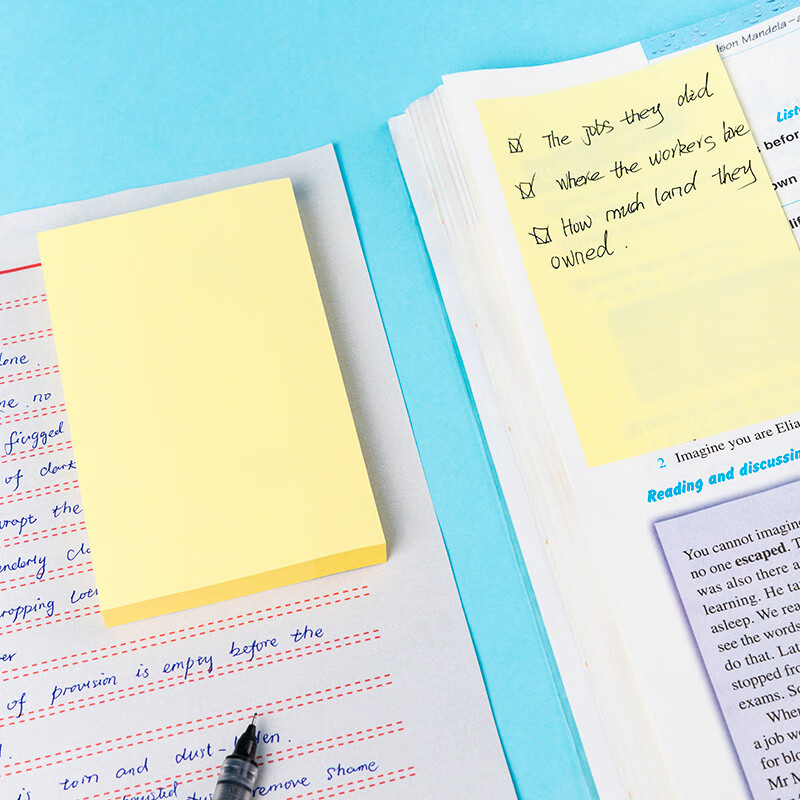 lone.
me no
fingged
of dark
wrapt the
enderly clo
ropping lote
er
of provision is empty before the
d.
is torn and dust-laden.
remove shame
The jobs they did
where the workers live
How much land they
owned.
lson Mandela—a
List
s before
own
lif
2 Imagine you are Elia
Reading and discussing
You cannot imagin
no one escaped. T
was also there a
learning. He ta
asleep. We rea
see the words
do that. Lat
stopped fro
exams. So
Whe
a job wo
for blo
Mr M